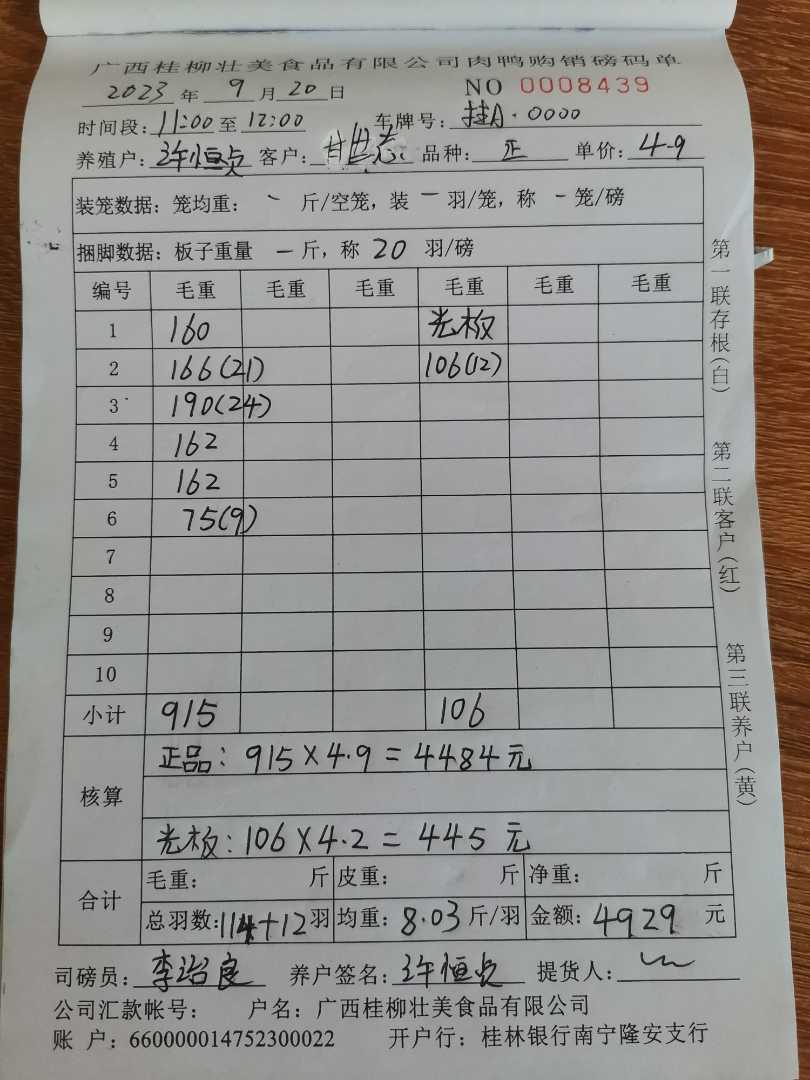 广西桂柳壮美食品有限公司肉鸭购销磅码单
2023 年 9 月 20 日 NO 0008439
时间段: 11:00 至 12:00 车牌号: 桂A·0000
养殖户: 许恒贞 客户: 甘世志 品种: 正 单价: 4.9
装笼数据: 笼均重: 一 斤/空笼, 装 一 羽/笼, 称 一 笼/磅
捆脚数据: 板子重量 一 斤, 称 20 羽/磅
编号 毛重 毛重 毛重 毛重 毛重 毛重
1 160 光板
2 166(21) 106(12)
3 190(24)
4 162
5 162
6 75(9)
7
8
9
10
小计 915 106
核算
正品: 915×4.9=4484元
光板: 106×4.2=445元
合计
毛重: 斤 皮重: 斤 净重: 斤
总羽数: 114+12 羽 均重: 8.03 斤/羽 金额: 4929 元
司磅员: 李治良 养户签名: 许恒贞 提货人:
公司汇款帐号: 户名: 广西桂柳壮美食品有限公司
账 户: 660000014752300022 开户行: 桂林银行南宁隆安支行
第一联存根(白)
第二联客户(红)
第三联养户(黄)